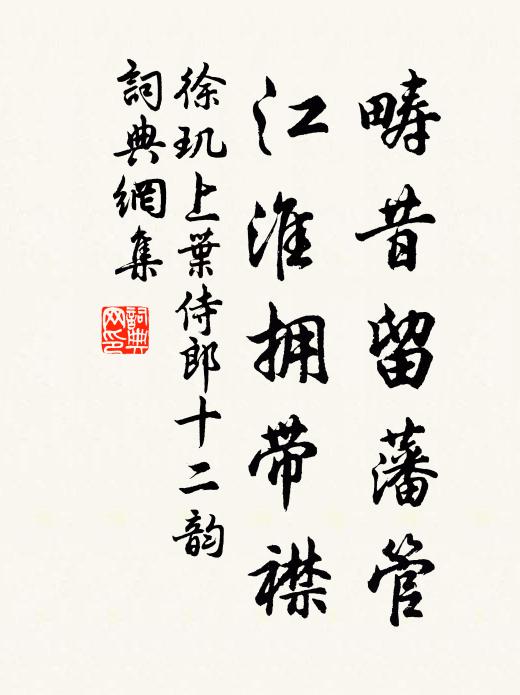 畴昔留藩管
江淮拥带襟
徐玑上葉侍郎十二韵
詞典網集
詞典网印